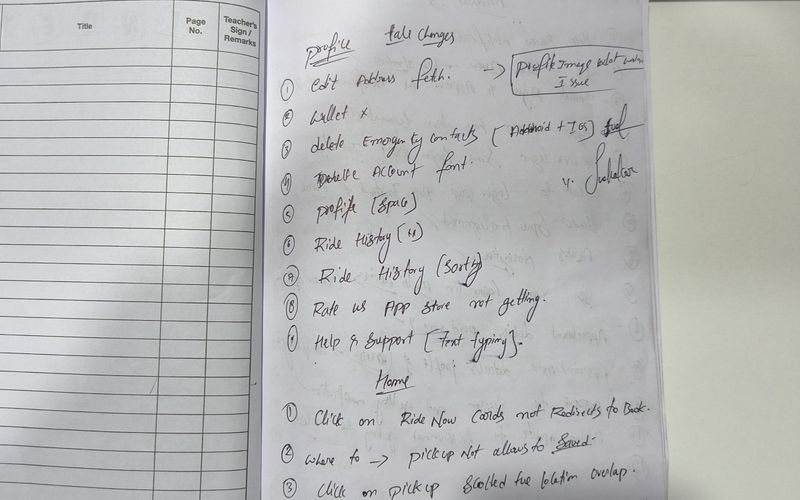 Title
Page No.
Teacher's Sign / Remarks
profile
① Edit Address fetch. → profile Image Issue
② wallet x
③ delete Emergenty contacts [Android + IOS]
④ Account font.
⑤ profile [Space]
⑥ Ride History
⑦ Ride History [Sortby]
⑧ Rate us App Store not getting.
⑨ Help & Support [Text typing].
Home
① Click on Ride Now Cards not Redirects to Book.
② Where to → pickup Not allows to Saved.
③ Click on pickup the location overlap.